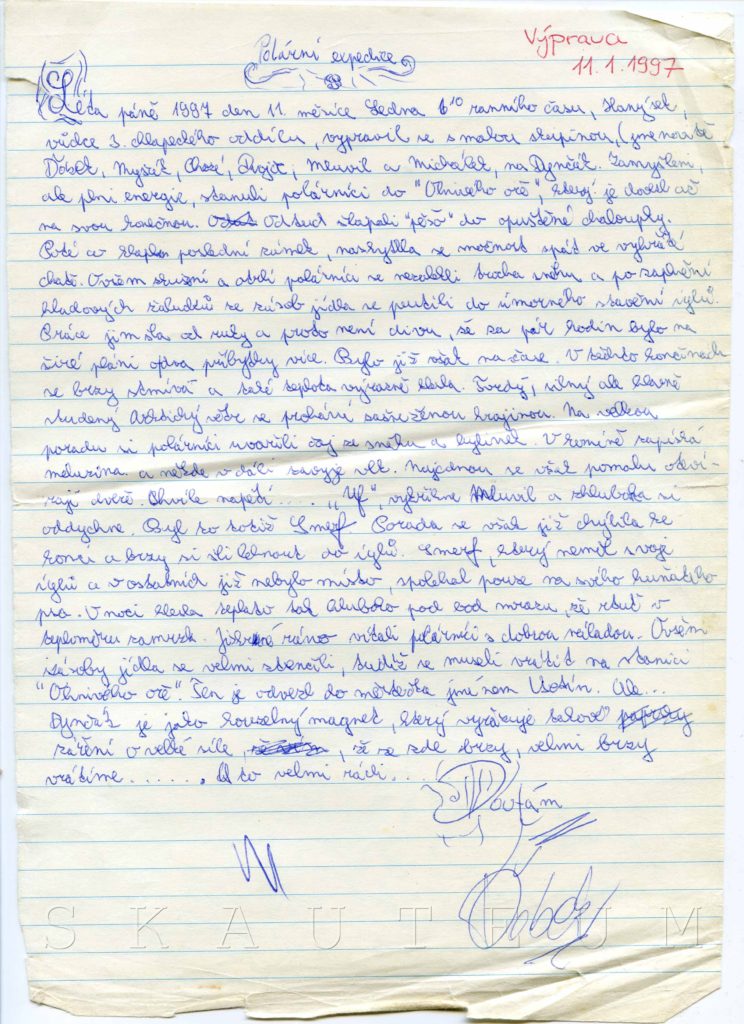 Výprava
11.1.1997
Polární expedice
Léta páně 1997 den 11. měsíce Ledna 6¹⁰ ranního času, Hanýsek,
vůdce 3. chlapeckého oddílu, vypravil se s malou skupinou, (jmenovitě
Ďobek, Myšák, Mluvil a Michálek, na Dynčák. Zamyšleni,
ale plni energie, stanuli polárníci do "Ohnivého oře", který je dovezl až
na svou konečnou. Odtud šlapali "pěšo" do opuštěné chaloupky.
Poté co klapl poslední zámek, naskytla se možnost spát ve vyhřáté
chatě. Ovšem slušní a otrlí polárníci se nezalekli trocha sněhu a po zaplnění
hladových žaludků ze zásob jídla se pustili do úmorného stavění iglů.
Práce jim šla od ruky a proto není divu, že za pár hodin bylo na
širé pláni o dva příbytky více. Bylo již však načase. V těchto končinách
se brzy stmívá a také teplota výrazně klesla. Tvrdý, silný ale hlavně
studený Arktický větr se proháněl zasněženou krajinou. Na velkou
poradu si polárníci uvařili čaj ze sněhu a bylinek. V komíně zapíská
meluzína a někde v dáli zavyje vlk. Najednou se však pomalu oteví-
rají dveře. Chvíle napětí .... „Uf", vykřikne Mluvil a zhluboka si
oddychne. Byl to totiž Smerf. Porada se však již chýlila ke
konci a brzy si šli lehnout do iglů. Smerf, který neměl svoje
iglů a v ostatních již nebylo místo, spoléhal pouze na svého huňatého
psa. V noci klesla teplota tak hluboko pod bod mrazu, že rtuť v
teploměru zamrzla. ráno vítali polárníci s dobrou náladou. Ovšem
zásoby jídla se velmi ztenčili, tudíž se museli vrátit na stanici
"Ohnivého oře". Ten je odvezl do městečka jménem Vsetín. Ale...
Dynčák je jako kouzelný magnet, který vyzařuje takové paprsky
záření o velké síle, , že se zde brzy, velmi brzy
vrátíme ...... . A to velmi rádi...
Doufám
Ďobek
SKAUTEUM